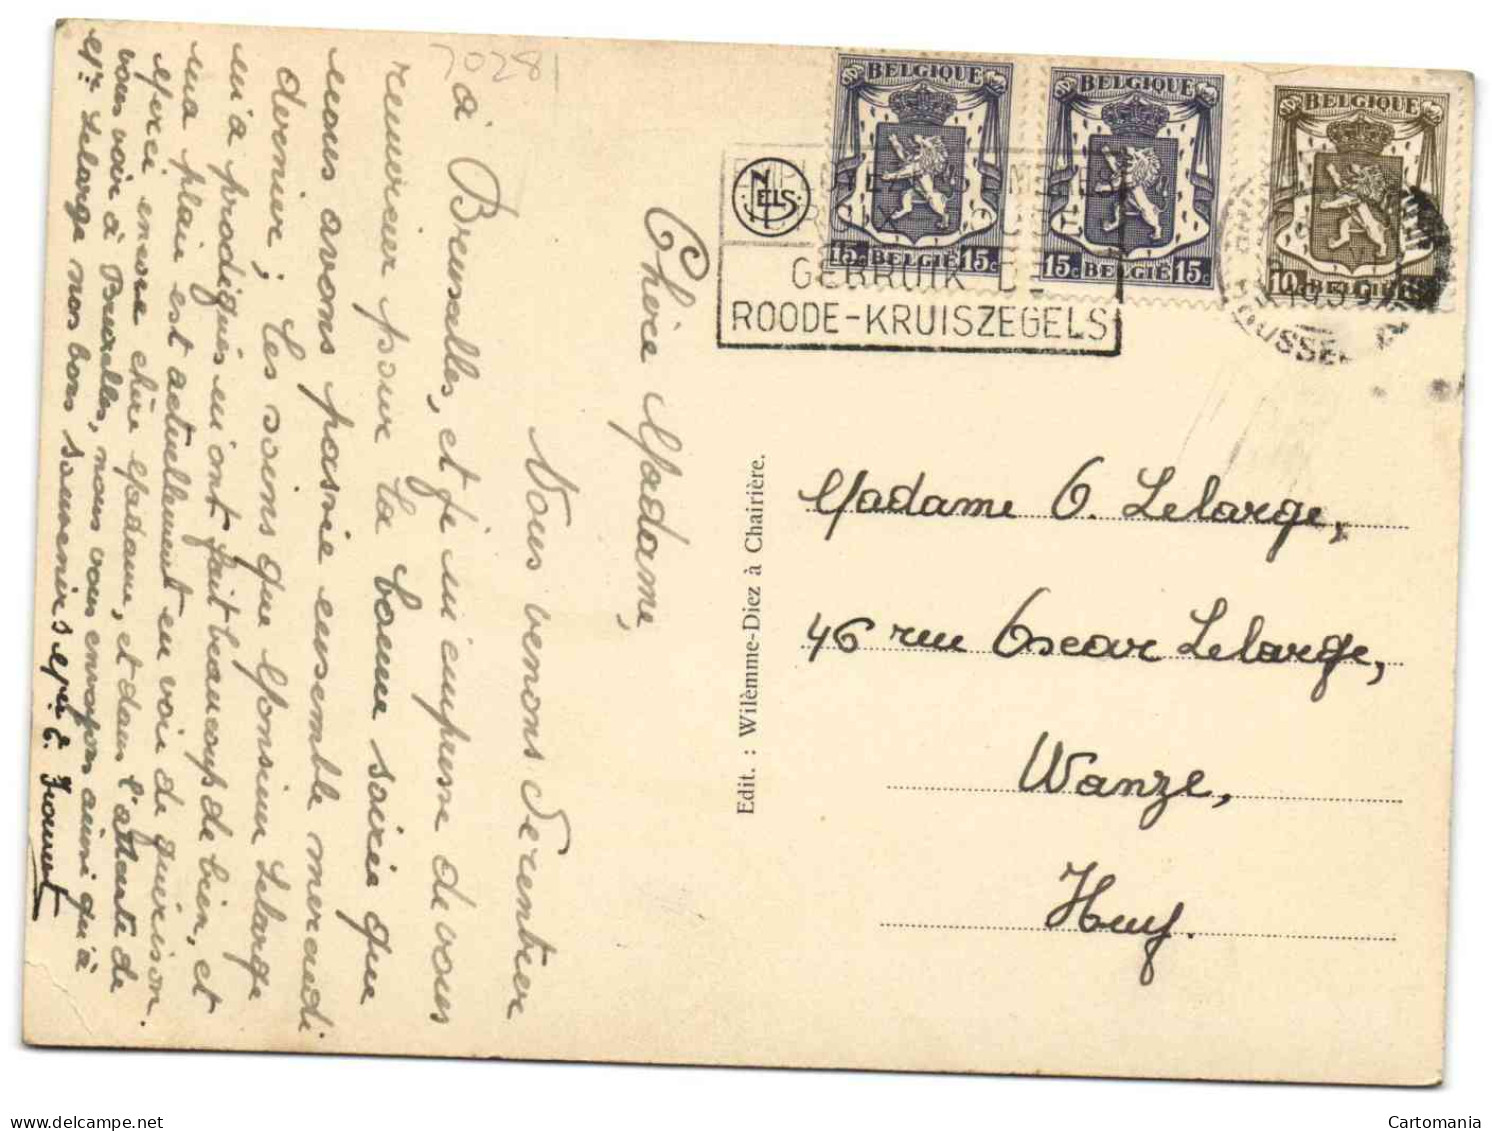 70281
Chère Madame,
Nous venons de rentrer
à Bruxelles, et je m'empresse de vous
remercier pour la bonne soirée que
nous avons passée ensemble mercredi
dernier; les soins que Monsieur Lelarge
m'a prodigués m'ont fait beaucoup de bien, et
ma plaie est actuellement en voie de guérison.
Merci encore chère Madame, et dans l'attente de
vous voir à Bruxelles, nous vous envoyons ainsi qu'à
Mr Lelarge nos bons souvenirs
BELGIQUE
15c BELGIË 15c
BELGIQUE
15c BELGIË 15c
BELGIQUE
10c BELGIË
NELS
GEBRUIK DE
ROODE-KRUISZEGELS
Edit. : Wilèmme-Diez à Chairière.
Madame O. Lelarge,
46 rue Oscar Lelarge,
Wanze,
Huy.
Cartomania